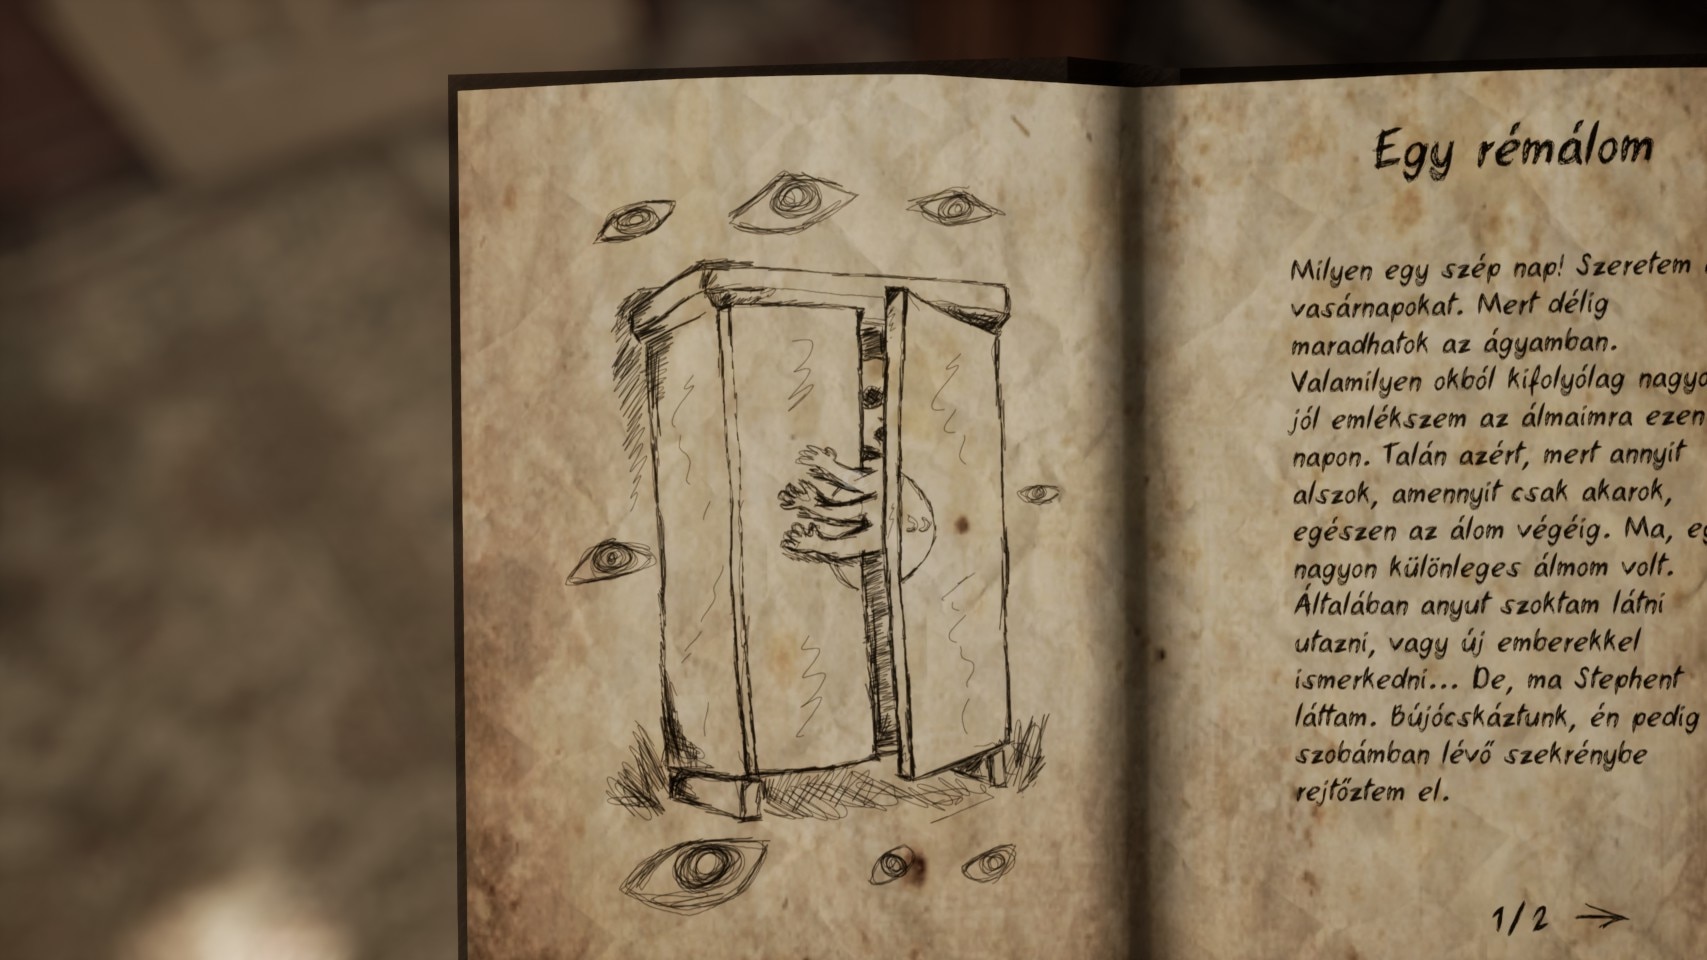 Egy rémálom
Milyen egy szép nap! Szeretem
vasárnapokat. Mert délig
maradhatok az ágyamban.
Valamilyen okból kifolyólag
jól emlékszem az álmaimra ezen
napon. Talán azért, mert annyit
alszok, amennyit csak akarok,
egészen az álom végéig. Ma,
nagyon különleges álmom volt.
Általában anyut szoktam látni
utazni, vagy új emberekkel
ismerkedni... De, ma Stephent
láttam. Bújócskáztunk, én pedig
szobámban lévő szekrénybe
rejtőztem el.
1/2 →